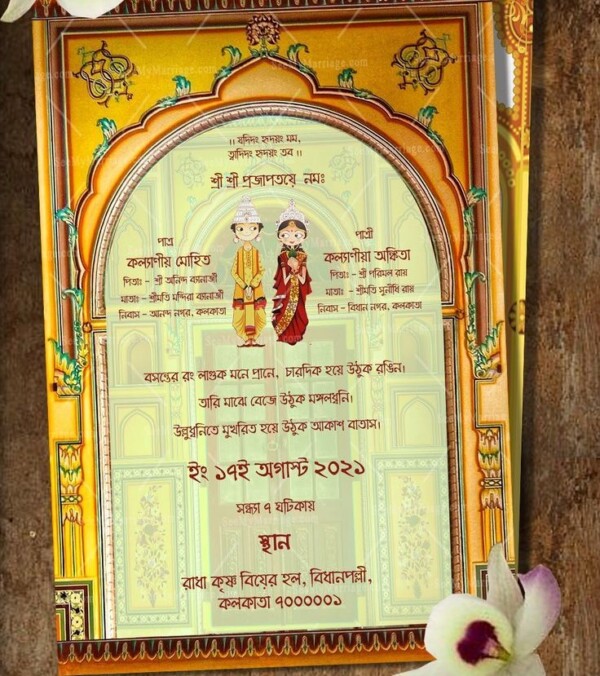 ।। যদিদং হৃদয়ং মম,
ত্বদিদং হৃদয়ং তব ।।
শ্রী শ্রী প্রজাপতয়ে নমঃ
পাত্র
কল্যাণীয় মোহিত
পিতাঃ - শ্রী অনিন্দ ব্যানার্জী
মাতাঃ - শ্রীমতি মন্দিরা ব্যানার্জী
নিবাস - আনন্দ নগর, কলকাতা
পাত্রী
কল্যাণীয়া অঙ্কিতা
পিতাঃ - শ্রী পরিমল রায়
মাতাঃ - শ্রীমতি সুনীথি রায়
নিবাস - বিধান নগর, কলকাতা
বসন্তের রং লাগুক মনে প্রানে, চারদিক হয়ে উঠুক রঙিন।
তারি মাঝে বেজে উঠুক মঙ্গলধ্বনি।
উলুধ্বনিতে মুখরিত হয়ে উঠুক আকাশ বাতাস।
ইং ১৭ই অগাস্ট ২০২১
সন্ধ্যা ৭ ঘটিকায়
স্থান
রাধা কৃষ্ণ বিয়ের হল, বিধানপল্লী,
কলকাতা ৭০০০০০১